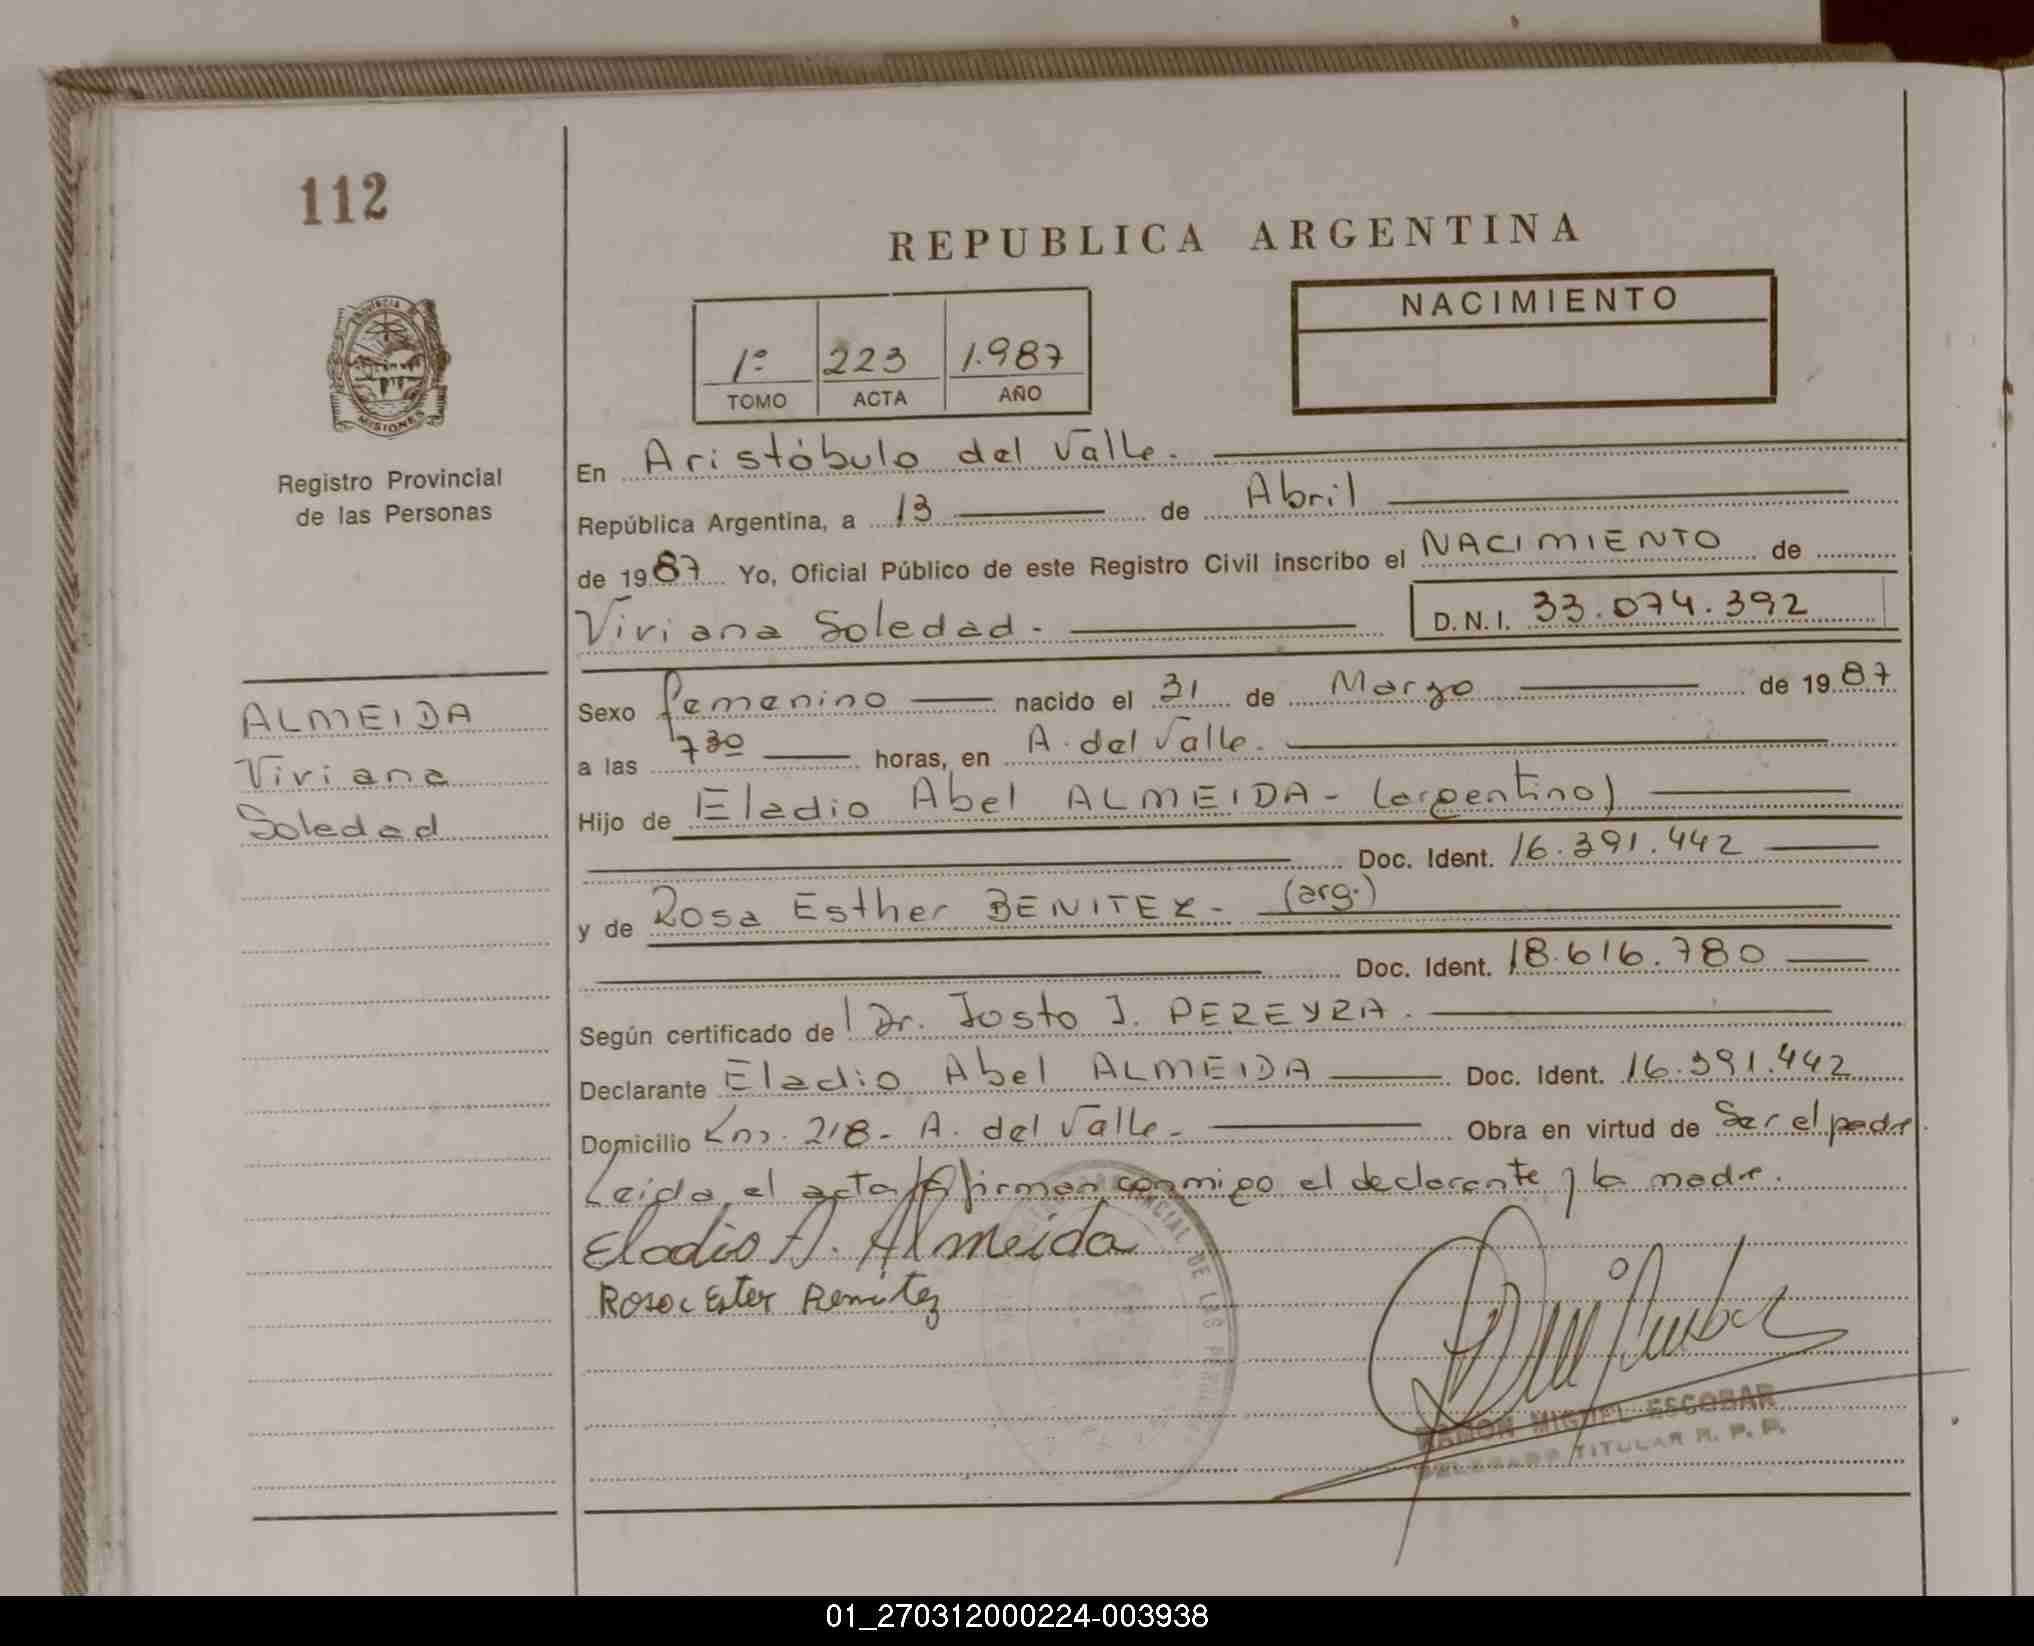 112
REPUBLICA ARGENTINA
PROVINCIA DE
MISIONES
Registro Provincial
de las Personas
1º 223 1.987
TOMO ACTA AÑO
NACIMIENTO
En Aristóbulo del Valle.
República Argentina, a 13 de Abril
de 1987 Yo, Oficial Público de este Registro Civil inscribo el NACIMIENTO de
Viviana Soledad. D.N.I. 33.074.392
ALMEIDA
Viviana
Soledad
Sexo femenino nacido el 31 de Marzo de 1987
a las 7 30 horas, en A. del Valle.
Hijo de Eladio Abel ALMEIDA - (argentino)
Doc. Ident. 16.391.442
y de Rosa Esther BENITEZ - (arg.)
Doc. Ident. 18.616.780
Según certificado de Dr. Justo J. PEREYRA.
Declarante Eladio Abel ALMEIDA Doc. Ident. 16.391.442
Domicilio Km. 218 - A. del Valle - Obra en virtud de Ser el padre
Leida el acta la firman conmigo el declarante y la madre.
Eladio A. Almeida
Rosa Ester Benitez
PROVINCIAL DE LAS PERSONAS
RAMON MIGUEL ESCOBAR
DELEGADO TITULAR R. P. P.
01_270312000224-003938